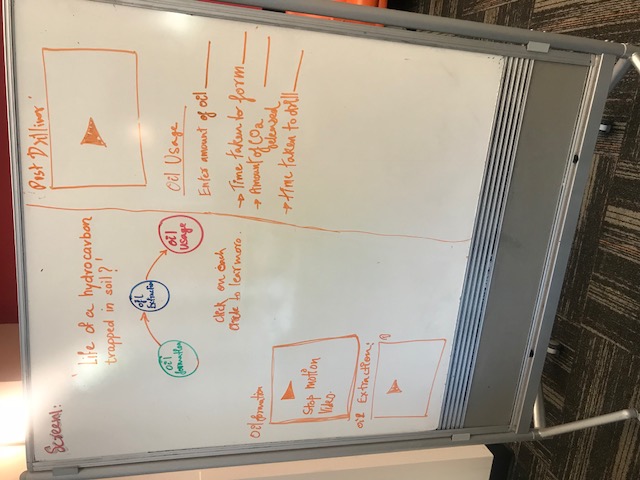 Screen1:
'Life of a hydrocarbon
trapped in soil?'
oil
formation
oil
Extraction
oil
usage
Click on each
circle to learn more.
Oil formation
Stop motion
Video
Oil Extraction:
Post Drilling:
Oil Usage
Enter amount of oil
→ Time taken to form
→ Amount of CO2
released
→ Time taken to drill